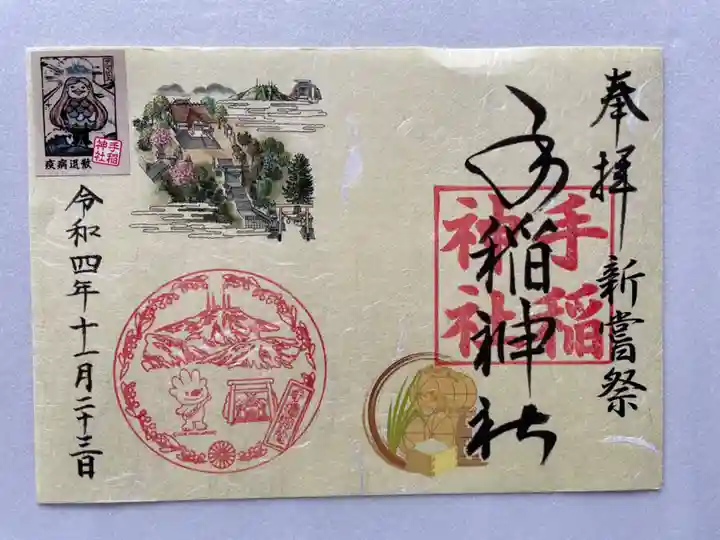 奉拝 新嘗祭
手稲神社
手稲
神社
手稲
神社
疾病退散
令和四年十一月二十三日